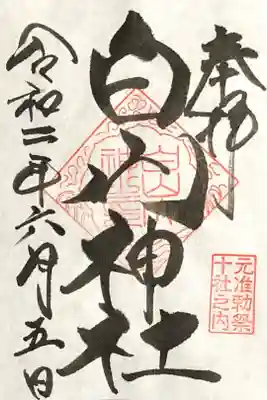 奉拝
白山神社
令和二年六月五日
元准勅祭
十社之内